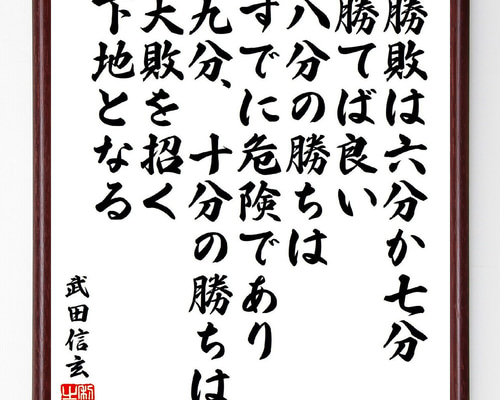 勝敗は六分か七分
勝てば良い
八分の勝ちは
すでに危険であり
九分、十分の勝ちは
大敗を招く
下地となる
武田信玄